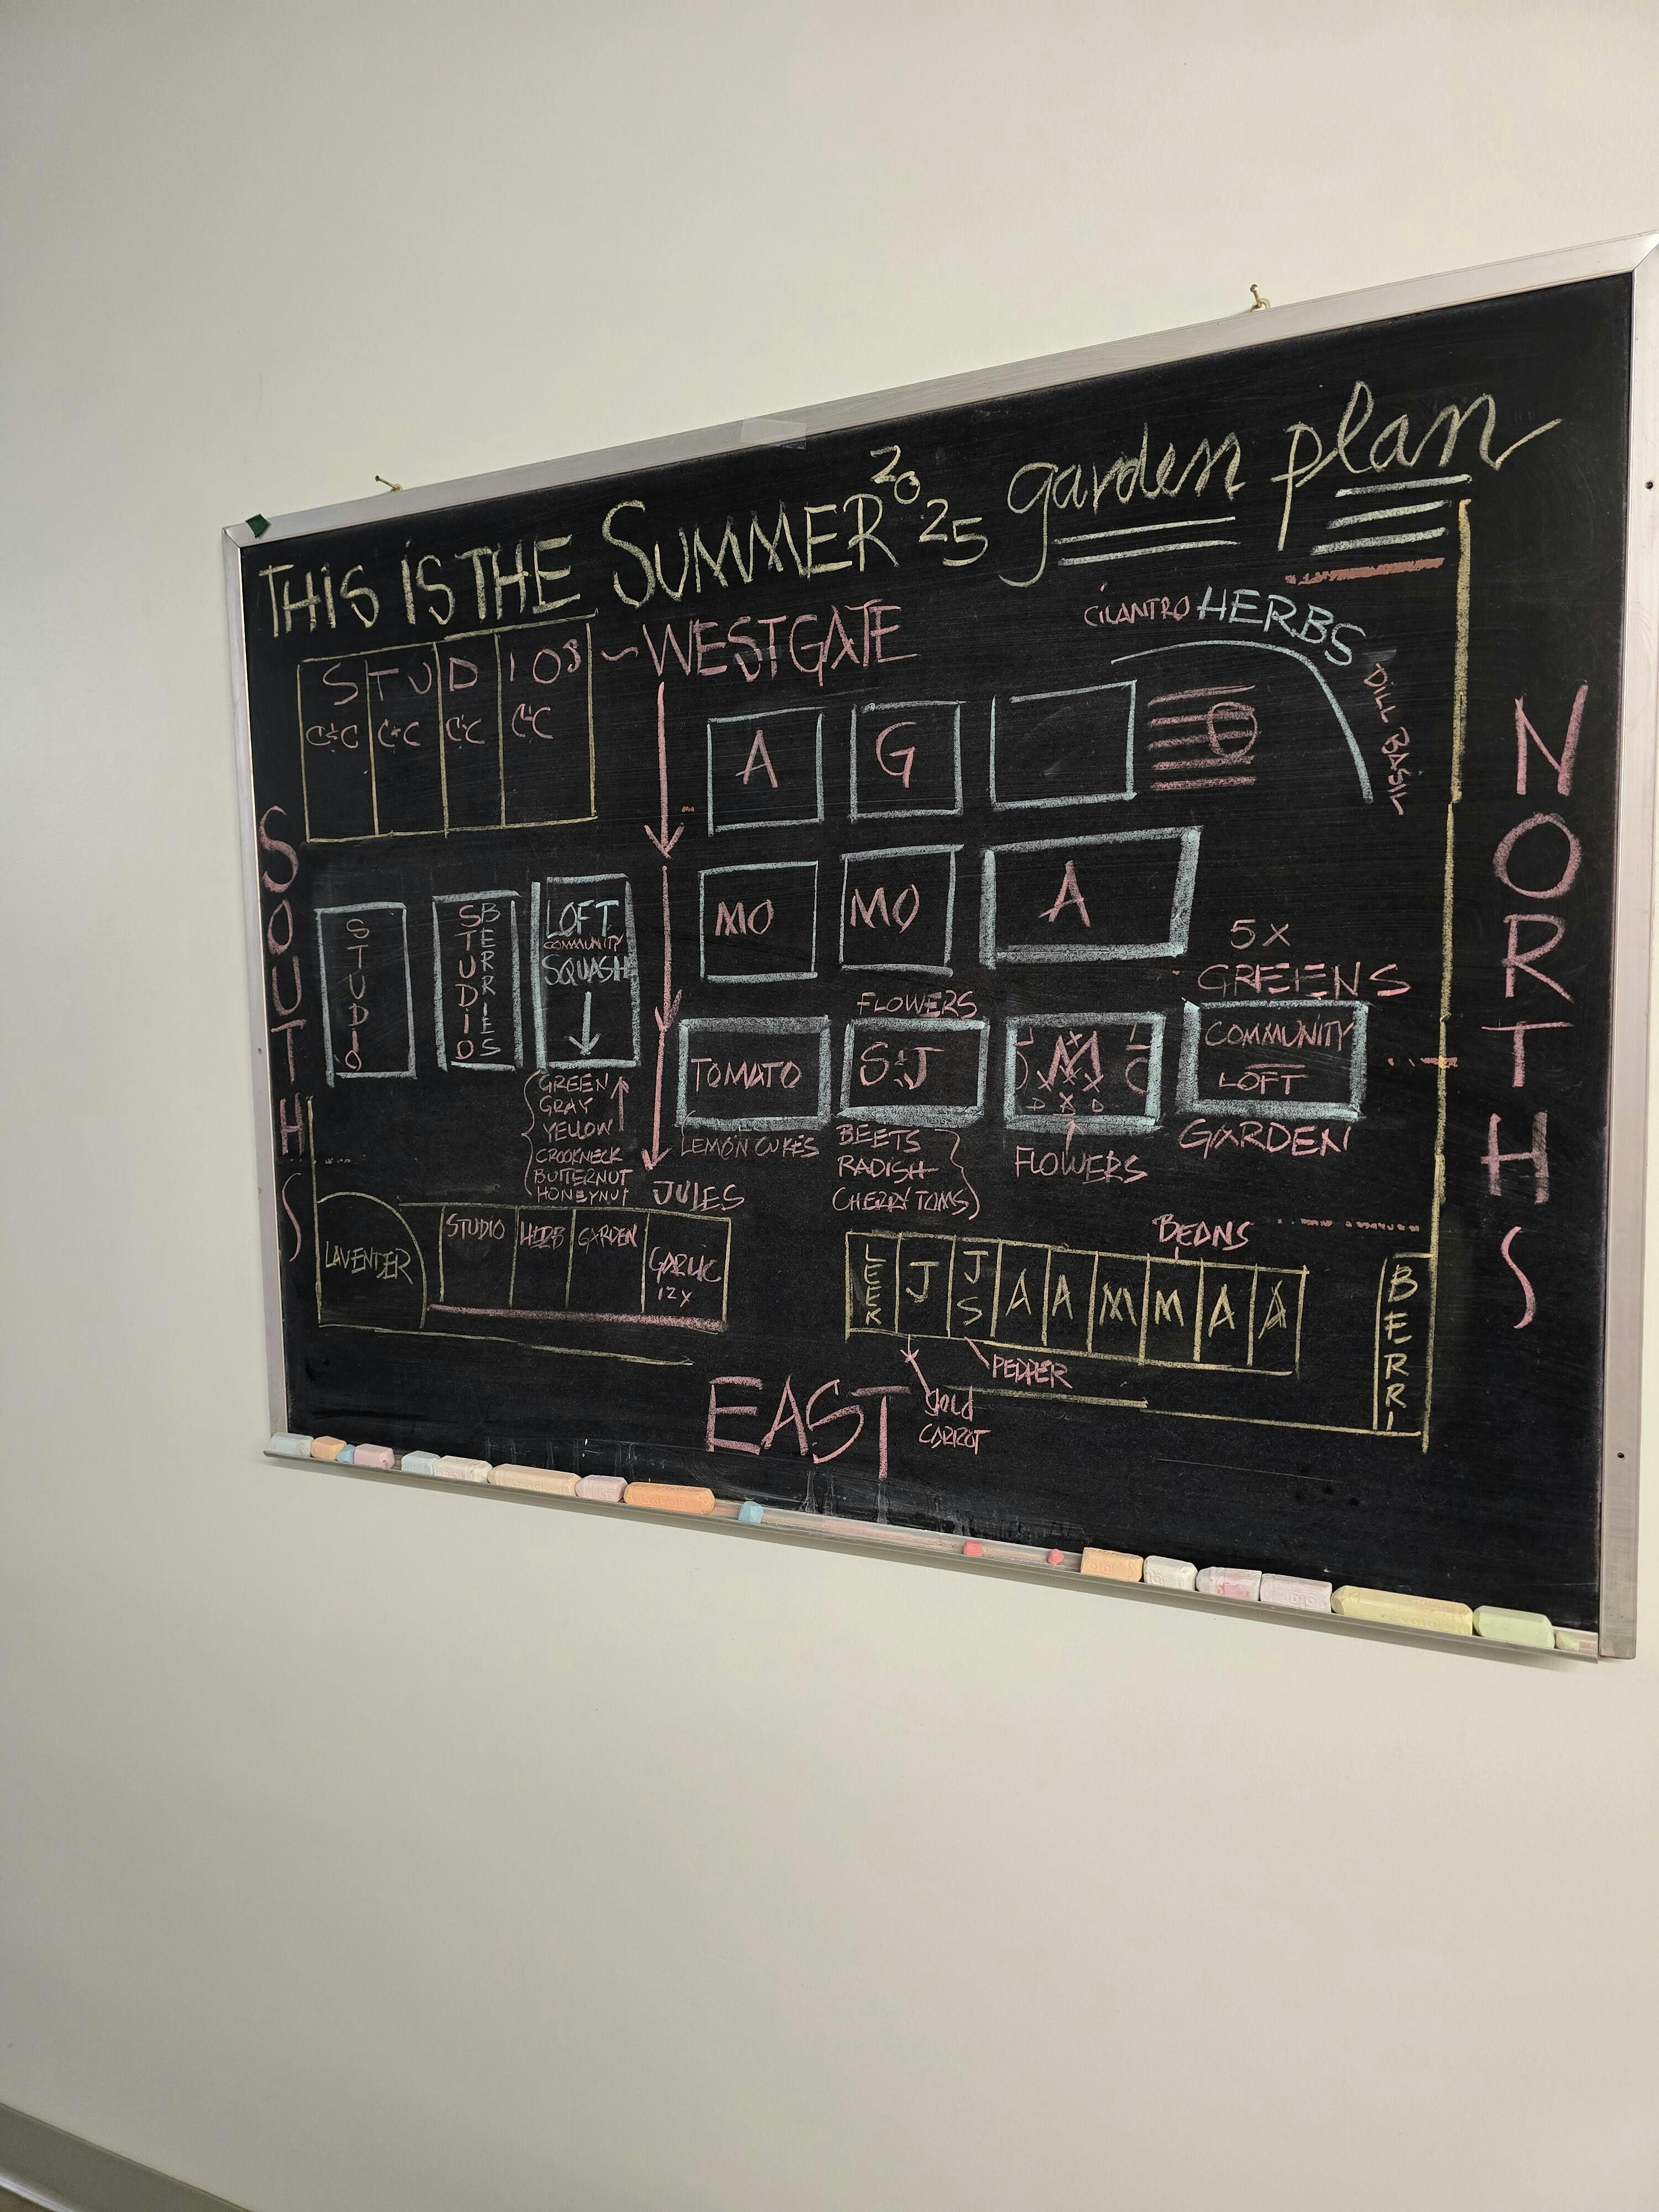 THIS IS THE SUMMER 2025 garden plan
STUDIOS ~ WESTGATE
C&C C&C C&C C&C
CILANTRO HERBS
DILL BASIL
A G
MO MO A
SOUTHS
NORTHS
STUDIO
STUDIO BERRIES
LOFT
COMMUNITY
SQUASH
GREEN
GRAY
YELLOW
CROOKNECK
BUTTERNUT
HONEYNUT
JULES
TOMATO
LEMON CUKES
FLOWERS
S&J
BEETS
RADISH
CHERRY TOMS
M
FLOWERS
5X
GREENS
COMMUNITY
LOFT
GARDEN
LAVENDER
STUDIO GARDEN GARLIC
12X
BEANS
LEEK J JS A A M M A A
PEPPER
gold
CARROT
BERRI
EAST